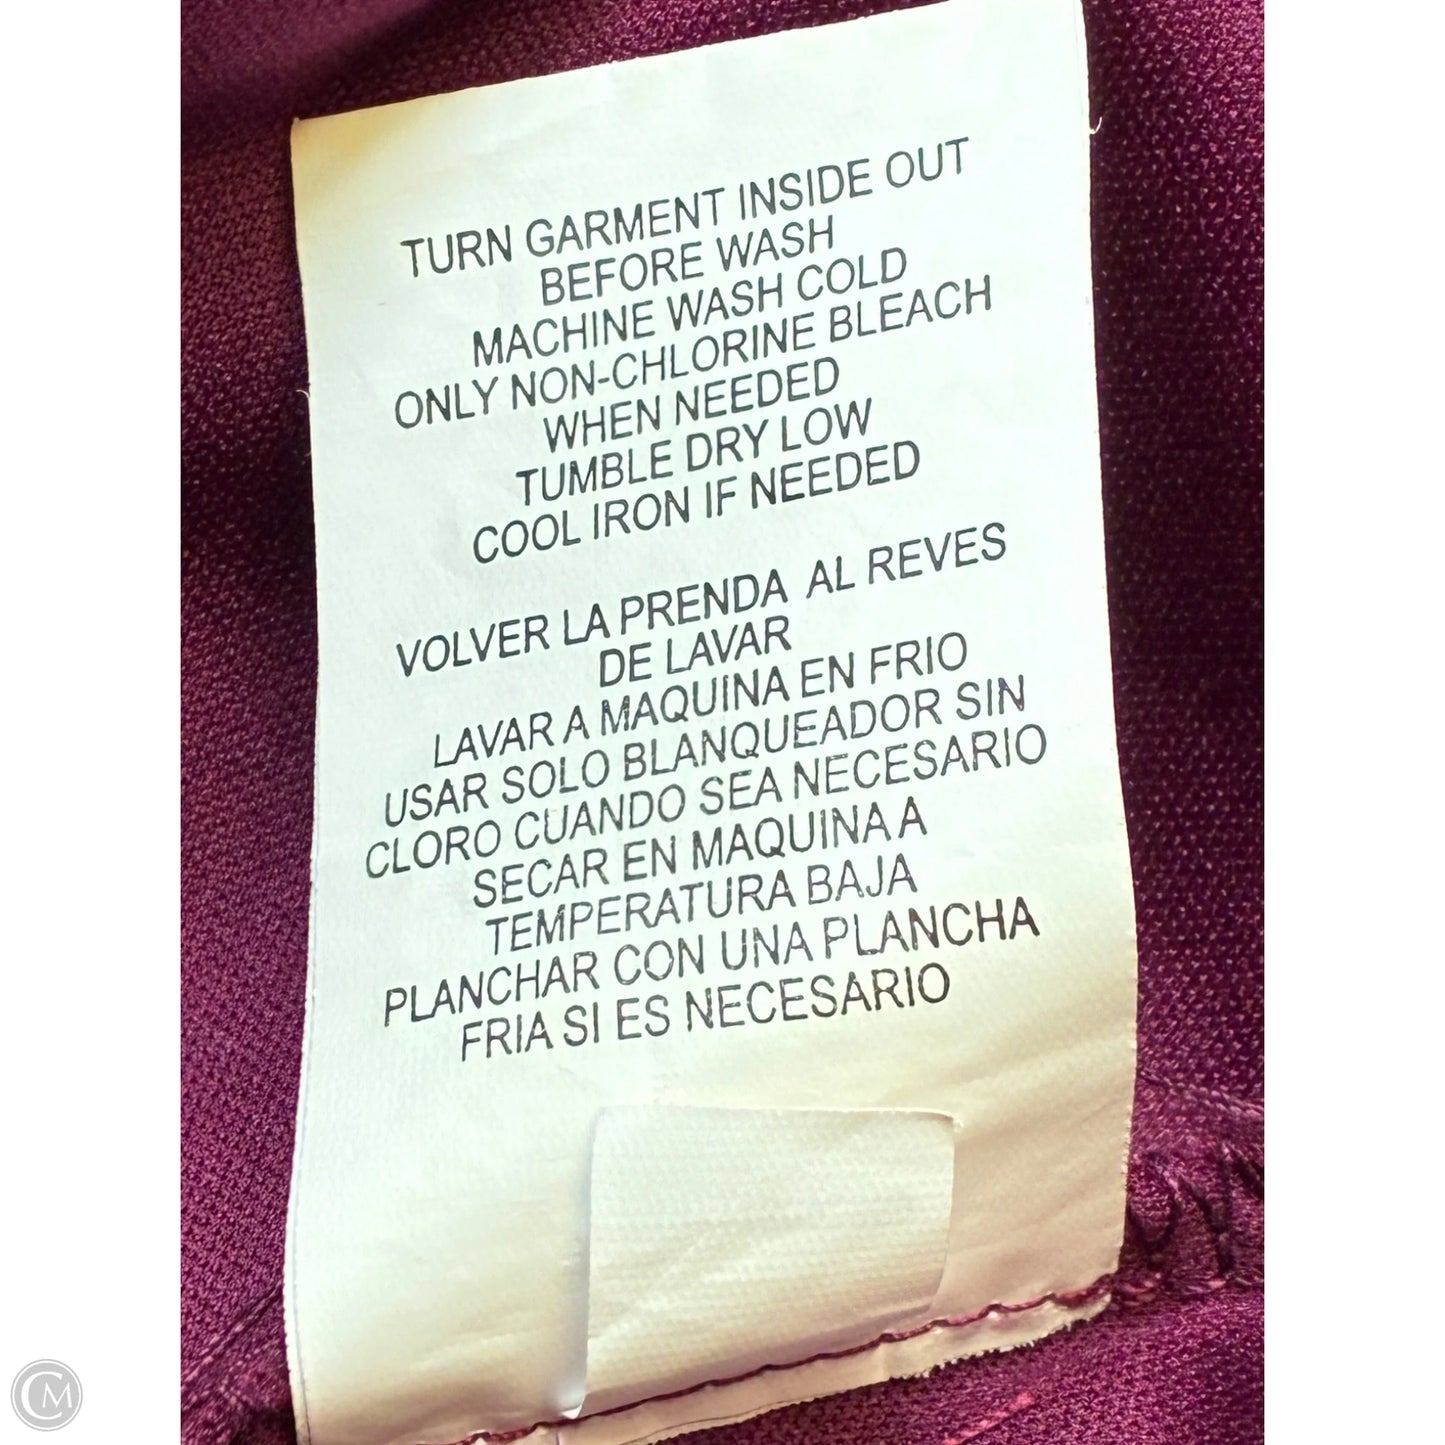 TURN GARMENT INSIDE OUT
BEFORE WASH
MACHINE WASH COLD
ONLY NON-CHLORINE BLEACH
WHEN NEEDED
TUMBLE DRY LOW
COOL IRON IF NEEDED
VOLVER LA PRENDA AL REVES
DE LAVAR
LAVAR A MAQUINA EN FRIO
USAR SOLO BLANQUEADOR SIN
CLORO CUANDO SEA NECESARIO
SECAR EN MAQUINA A
TEMPERATURA BAJA
PLANCHAR CON UNA PLANCHA
FRIA SI ES NECESARIO
CM